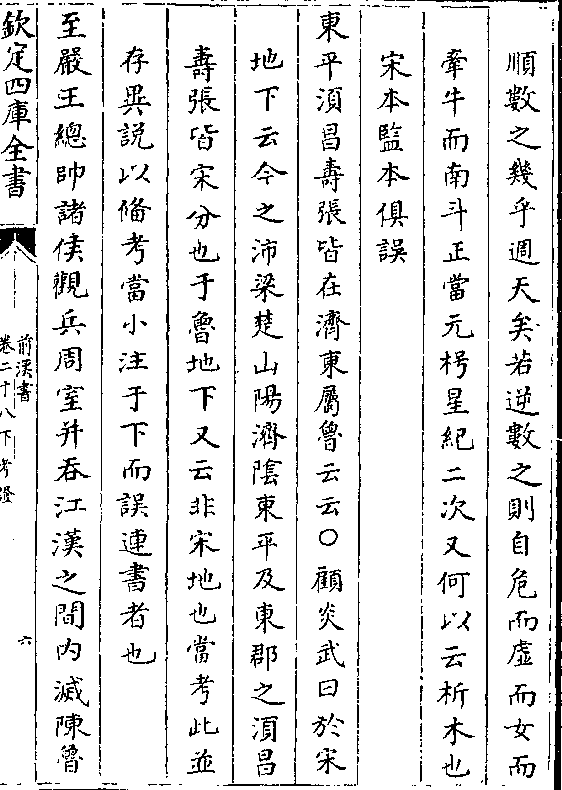 順數之幾乎週天矣若逆數之則自危而虛而女而
牽牛而南斗正當元枵星紀二次又何以云析木也
宋本監本俱誤
東平須昌壽張皆在濟東屬魯云云○顧炎武曰於宋
地下云今之沛梁楚山陽濟陰東平及東郡之須昌
壽張皆宋分也于魯地下又云非宋地也當考此並
存異説以備考當小注于下而誤連書者也
至嚴王總帥諸侯觀兵周室并吞江漢之間内滅陳魯
欽定四庫全書
前漢書
卷二十八下考證
六